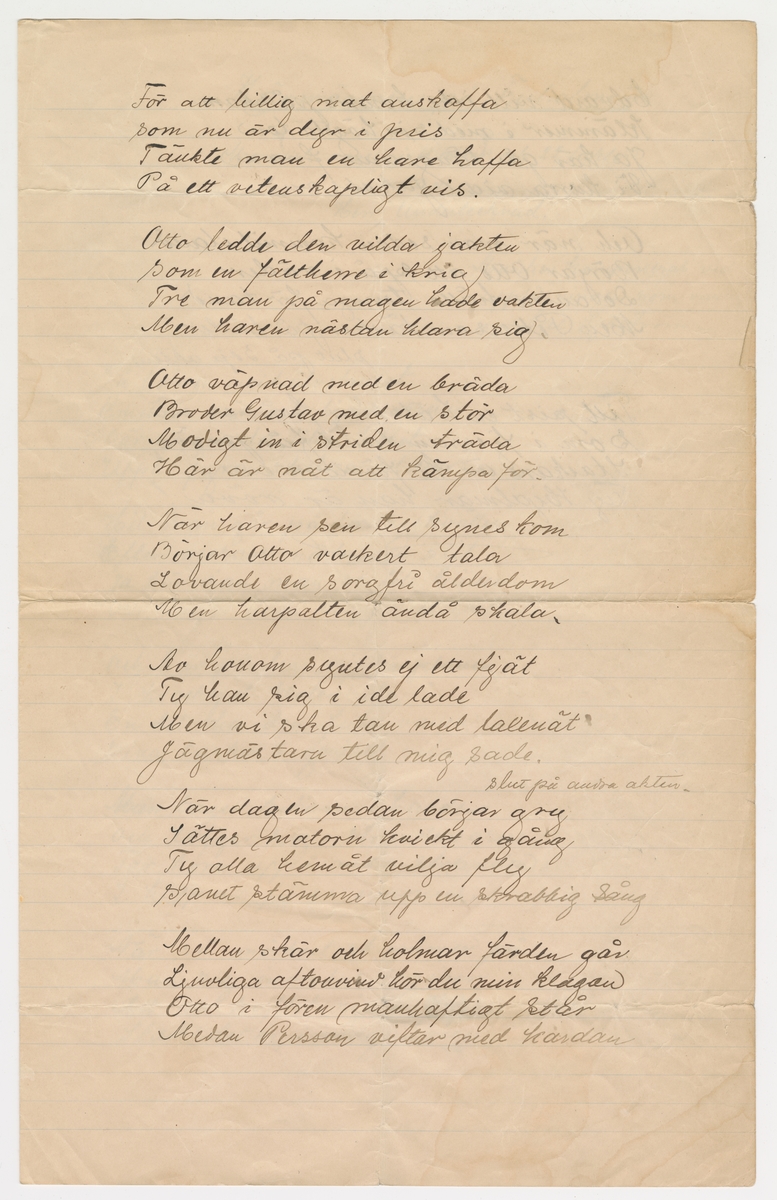 För att billig mat anskaffa
som nu är dyr i pris
Tänkte man en hare haffa
På ett vetenskapligt vis.
Otto ledde den vilda jakten
Som en fältherre i krig
Tre man på magen hade vakten
Men haren nästan klara sig.
Otto väpnad med en bräda
Broder Gustav med en stör
Modigt in i striden träda
Här är nåt att kämpa för.
När haren sen till synes kom
Börjar Otto vackert tala
Lovande en sorgfri ålderdom
Men harpalten ändå skala.
Av honom syntes ej ett fjät
Ty han sig i ide lade
Men vi ska tan med lallenät
Jägmästarn till mig sade.
slut på andra akten.
När dagen sedan börjar gry
Sättes motorn kvickt i gång
Ty alla hemåt vilja fly
stämma upp en skrabbig sång
Mellan skär och holmar färden går
Ljuvliga aftonvind hör du min klagan
Otto i fören manhaftigt står
Medan Persson viftar med kardan